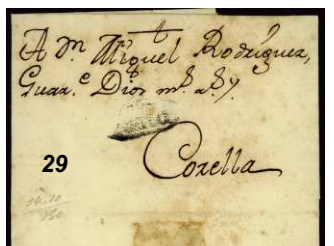 A Dn. Miguel Rodriguez,
Guar.e Dios ms. as.
Corella
29